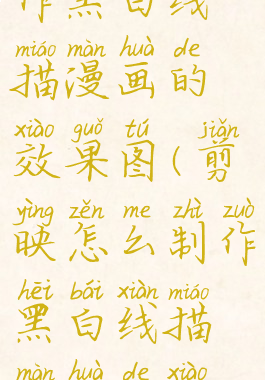 作黑白线
miáo màn huà de
描漫画的
xiào guǒ tú jiǎn
效果图(剪
yìng zěn me zhì zuò
映怎么制作
hēi bái xiàn miáo
黑白线描
màn huà de xiào